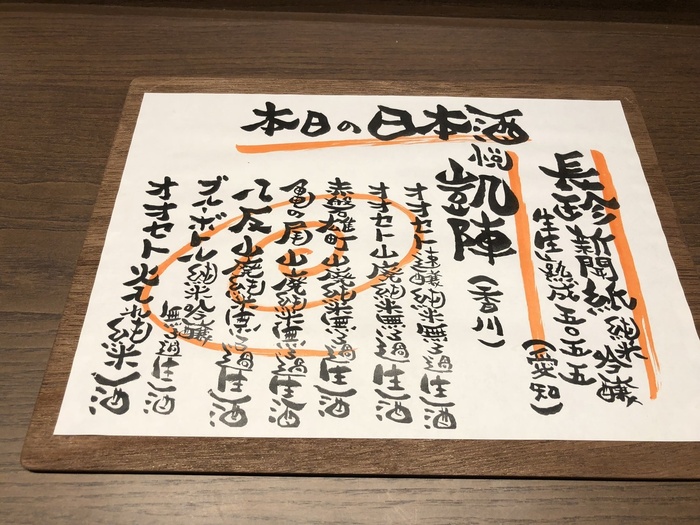 本日の日本酒
長珍 新聞紙 純米吟醸
生生熟成五〇五五
(愛知)
悦凱陣 (香川)
オオセト 速醸純米無ろ過生酒
オオセト 山廃純米無ろ過生酒
赤磐雄町 山廃純米無ろ過生酒
亀の尾 山廃純米無ろ過生酒
八反 山廃純米無ろ過生酒
ブルーボトル 純米吟醸
無ろ過生酒
オオセト
純米酒